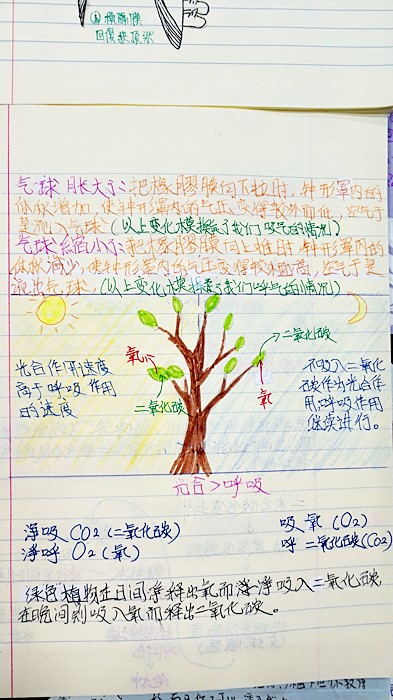 橡膠膜
回復原狀
气球 脹大了:把橡膠膜向下拉时,钟形罩内的
体积增加,使钟形罩内的气压变得較外面低,空气于
是流入气球。(以上变化模拟了我们吸气的情况)
气球縮小了:把橡膠膜向上推时,钟形罩內的
体积減少,使钟形罩内的气压变得較外面高,空气于是
流出气球。(以上变化模拟了我们呼气的情况)
光合作用速度
高于呼吸作用
的速度
氧
二氧化碳
二氧化碳
氧
不吸入二氧化
碳作出光合作
用,呼吸作用
继续进行。
光合>呼吸
淨吸 CO2 (二氧化碳)
淨呼 O2 (氧)
吸 氧 (O2)
呼 二氧化碳(CO2)
绿色植物在日间淨釋出氧而淨吸入二氧化碳
在晚间則吸入氧而釋出二氧化碳。